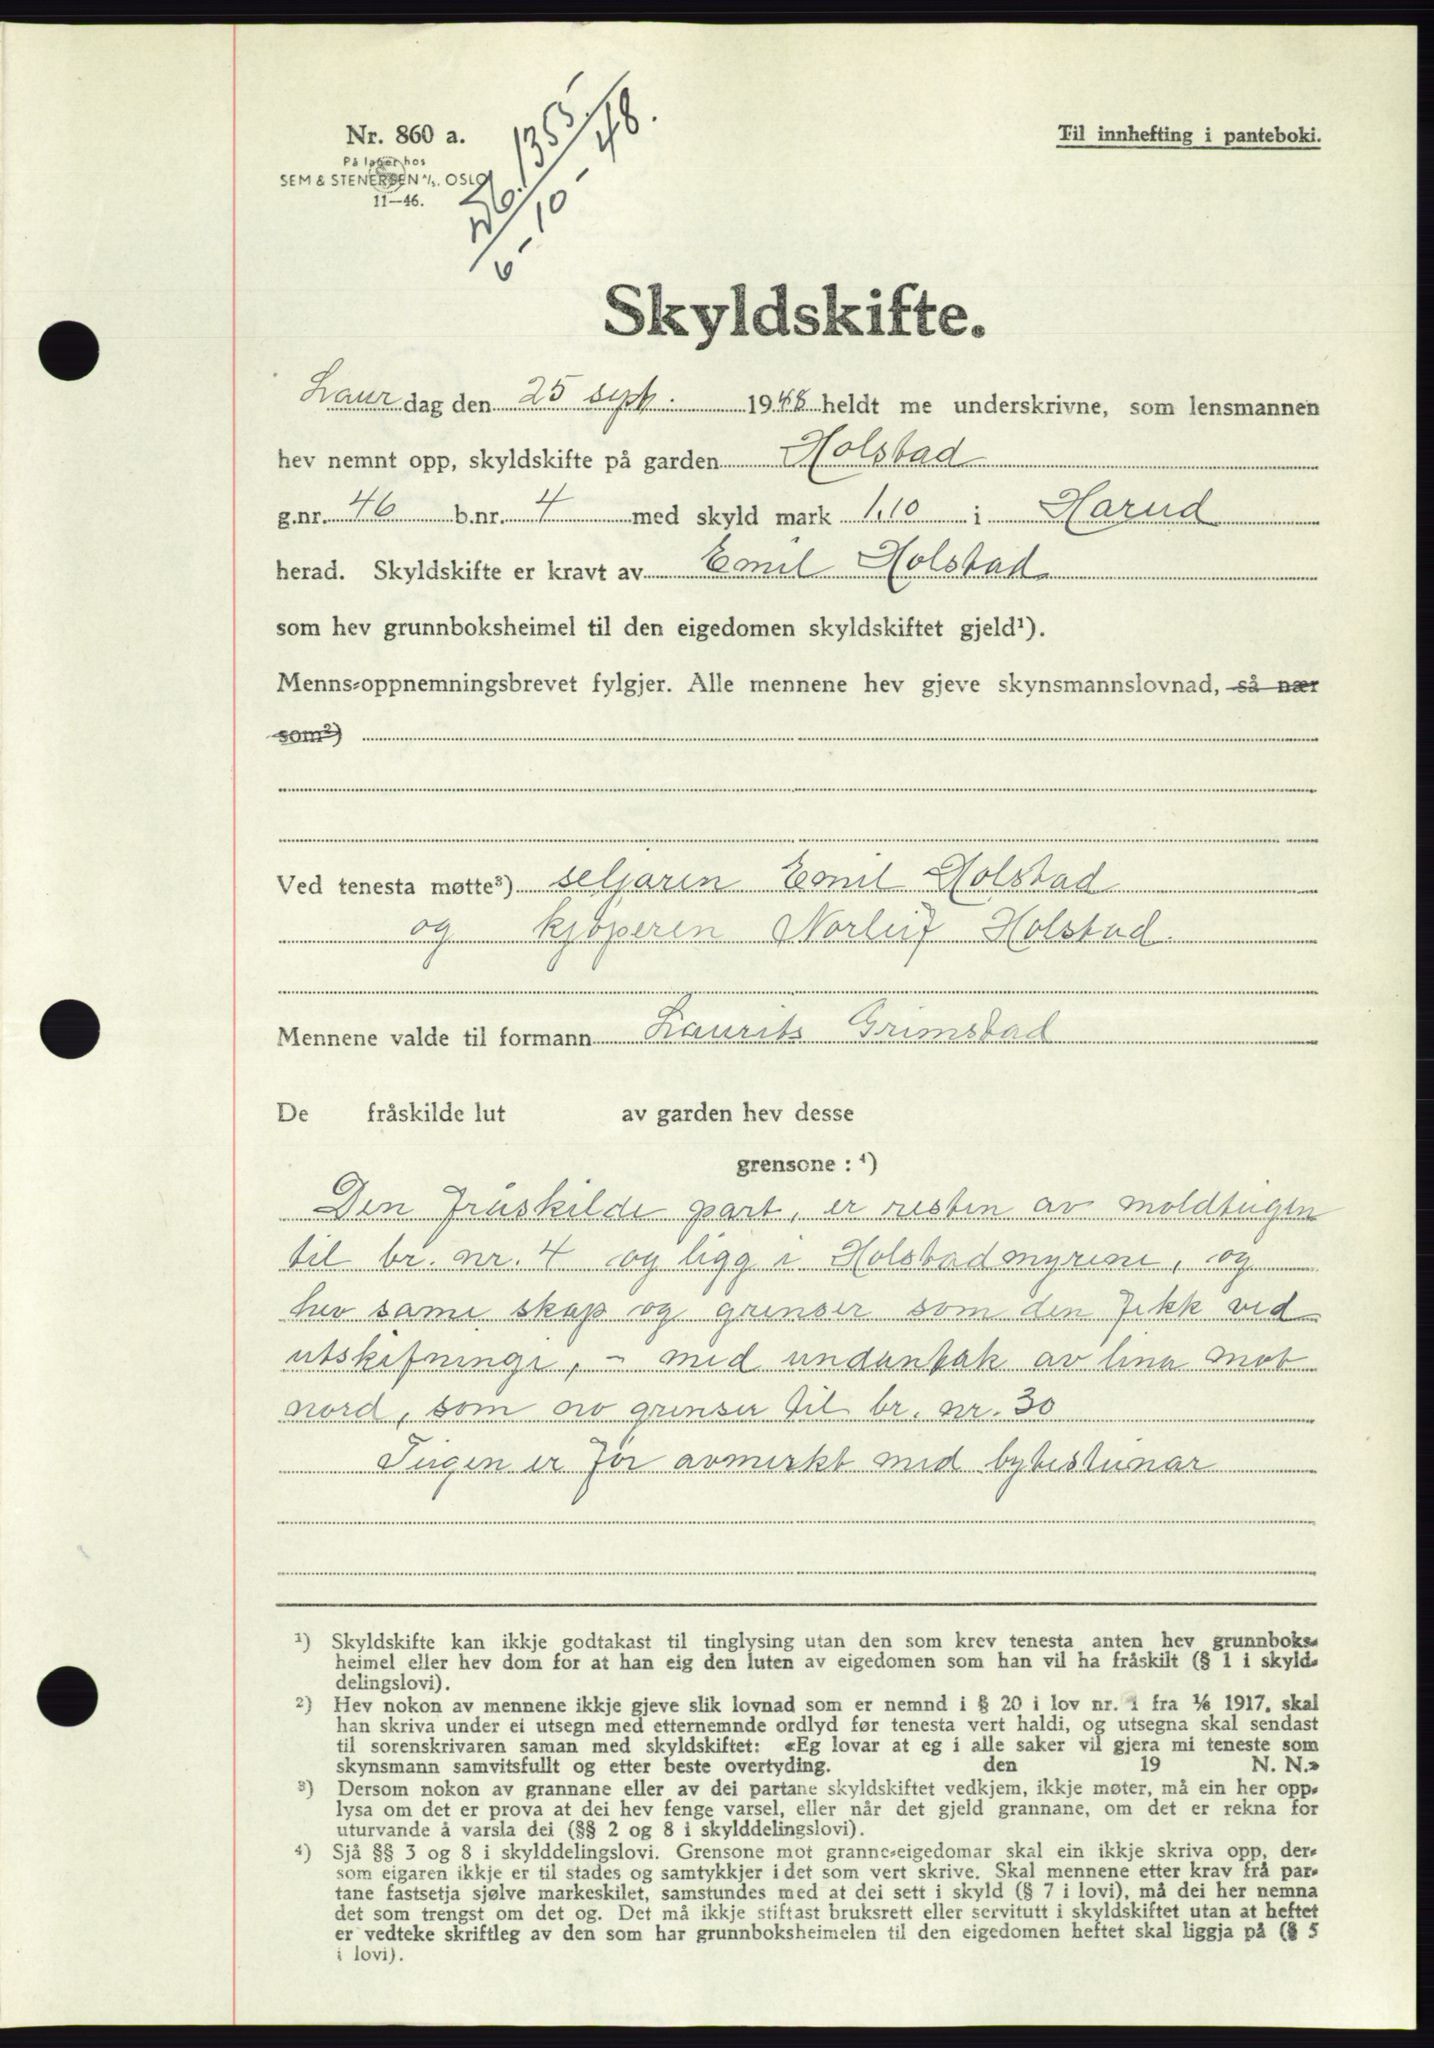 Nr. 860 a.
På lager hos
SEM & STENERSEN A/S. OSLO
11—46.
Db. 1355
6-10-48.
Til innhefting i panteboki.
Skyldskifte.
Laurdag den 25 sept. 1948 heldt me underskrivne, som lensmannen
hev nemnt opp, skyldskifte på garden Holstad
g.nr. 46 b.nr. 4 med skyld mark 1.10 i Harund
herad. Skyldskifte er kravt av Emil Holstad
som hev grunnboksheimel til den eigedomen skyldskiftet gjeld¹).
Menns-oppnemningsbrevet fylgjer. Alle mennene hev gjeve skynsmannslovnad, så nær
som²)
Ved tenesta møtte³) seljaren Emil Holstad
og kjøperen Norleif Holstad.
Mennene valde til formann Laurits Grimstad
De fråskilde lut av garden hev desse
grensone : ⁴)
Den fråskilde part, er resten av moldteigen
til br. nr. 4 og ligg i Holstadmyrene, og
hev same skap og grenser som den fekk ved
utskifningi, - med undantak av lina mot
nord, som no grenser til br. nr. 30
Teigen er før avmerkt med bytesteinar
¹) Skyldskifte kan ikkje godtakast til tinglysing utan den som krev tenesta anten hev grunnboks-
heimel eller hev dom for at han eig den luten av eigedomen som han vil ha fråskilt (§ 1 i skyld-
delingslovi).
²) Hev nokon av mennene ikkje gjeve slik lovnad som er nemnd i § 20 i lov nr. 1 fra ⅙ 1917, skal
han skriva under ei utsegn med etternemnde ordlyd før tenesta vert haldi, og utsegna skal sendast
til sorenskrivaren saman med skyldskiftet: «Eg lovar at eg i alle saker vil gjera mi teneste som
skynsmann samvitsfullt og etter beste overtyding. den 19 N. N.»
³) Dersom nokon av grannane eller av dei partane skyldskiftet vedkjem, ikkje møter, må ein her opp-
lysa om det er prova at dei hev fenge varsel, eller når det gjeld grannane, om det er rekna for
uturvande å varsla dei (§§ 2 og 8 i skylddelingslovi).
⁴) Sjå §§ 3 og 8 i skylddelingslovi. Grensone mot granne-eigedomar skal ein ikkje skriva opp, der-
som eigaren ikkje er til stades og samtykkjer i det som vert skrive. Skal mennene etter krav frå par-
tane fastsetja sjølve markeskilet, samstundes med at dei sett i skyld (§ 7 i lovi), må dei her nemna
det som trengst om det og. Det må ikkje stiftast bruksrett eller servitutt i skyldskiftet utan at heftet
er vedteke skriftleg av den som har grunnboksheimelen til den eigedomen heftet skal liggja på (§ 5
i lovi).